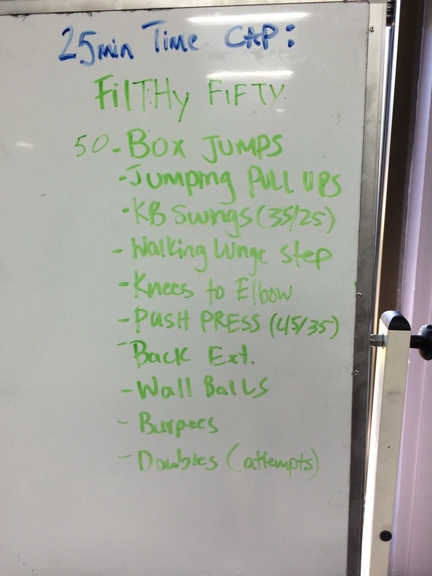 25min Time CAP:
FilTHy FiFTY
50-Box Jumps
-Jumping PULL UPS
-KB Swings (35/25)
-Walking Lunge step
-Knees to Elbow
-PUSH PRESS (45/35)
-Back Ext.
-Wall Balls
-Burpees
-Doubles (attempts)